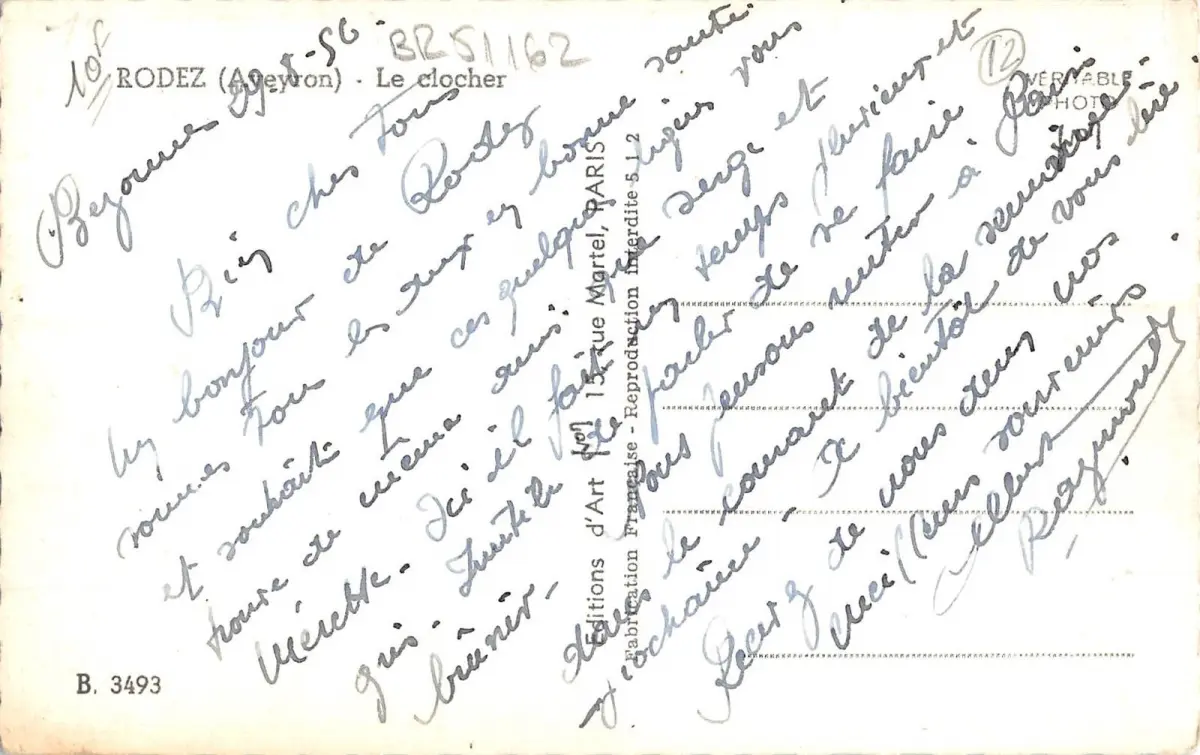 10F
BR51162
12
RODEZ (Aveyron) - Le clocher
VÉRITABLE
PHOTO
29-8-56
Bien chers Tous
un bonjour de Rodez
sommes Tous les deux en bonne santé
et souhaite que ces quelques lignes vous
trouve de même ainsi que Serge et
Ménette. Ici il fait un temps pluvieux et
gris. Inutile de parler de se faire
brunir. Nous pensons rentrer à Paris
dans le courant de la semaine
prochaine - A bientôt de vous lire.
Recevez de nous deux nos
meilleurs souvenirs.
Albert
Raymonde
Editions d'Art Yvon, 15, rue Martel, PARIS
Fabrication Française - Reproduction Interdite 5.1.2
B. 3493